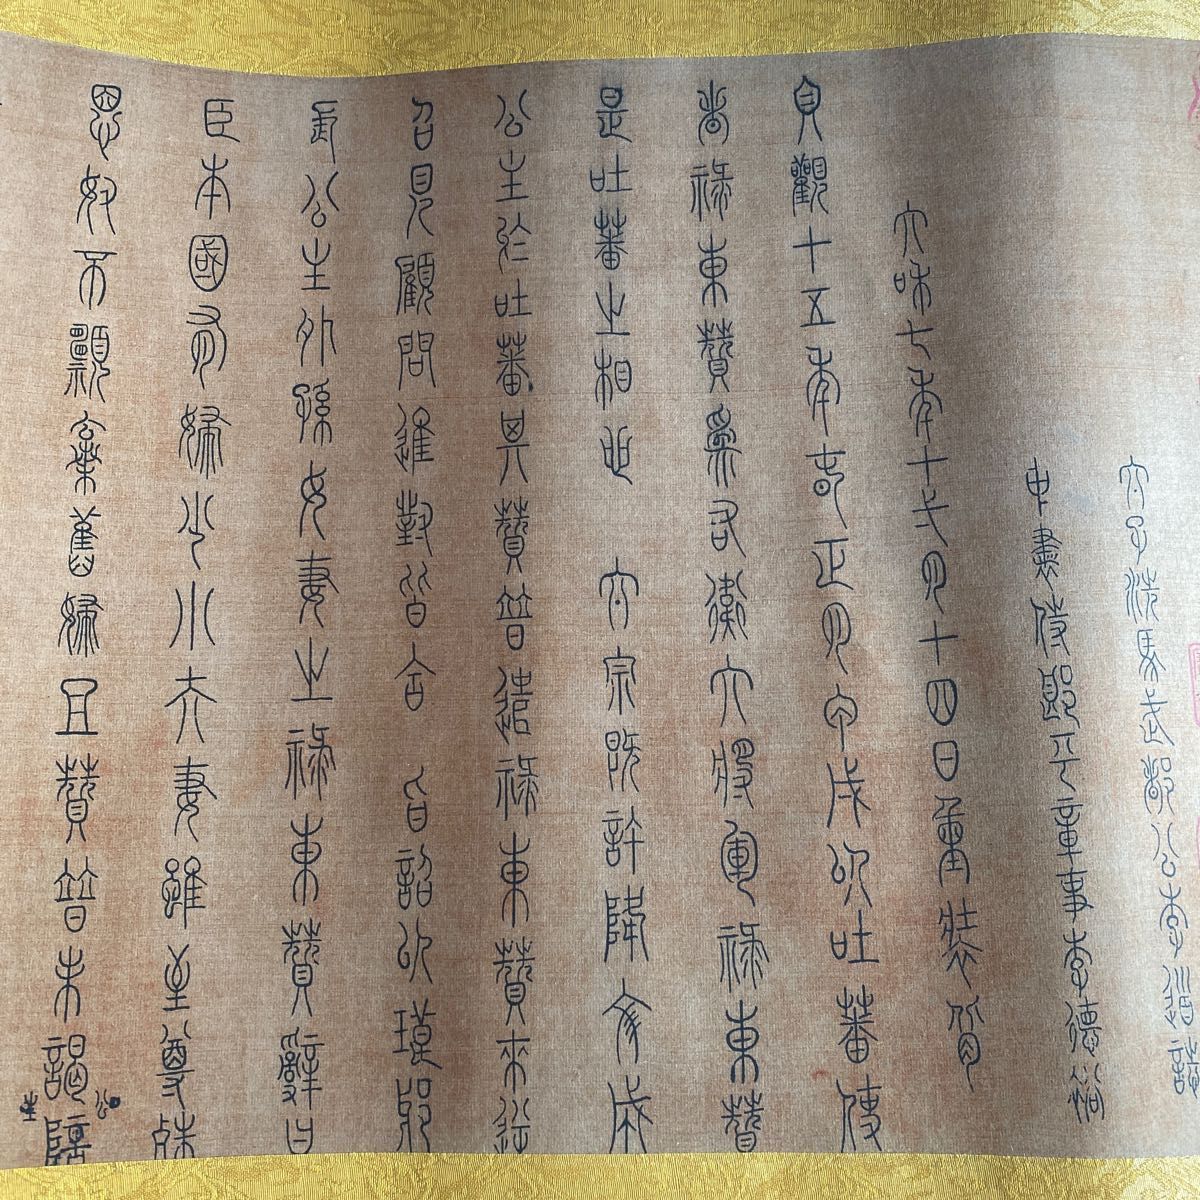 太子洗馬武都公李道誌
中書侍郎平章事李德裕
太和七年十一月十四日重裝背
貞觀十五年春正月甲戌以吐蕃使
者祿東贊為右衛大將軍祿東贊
是吐蕃之相也 太宗既許降文成
公主於吐蕃其贊普遣祿東贊來迎
召見顧問進對皆合 旨詔以瑯琊
長公主外孫女妻之祿東贊辭曰
臣本國有婦少小夫妻雖至尊殊
恩奴不願棄舊婦且贊普未謁公主陪